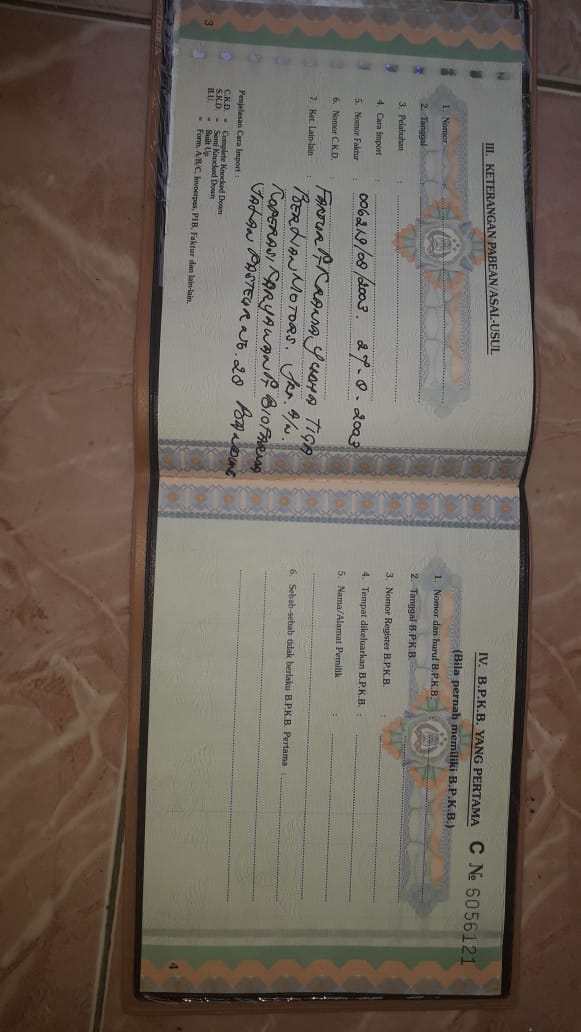 III. KETERANGAN PABEAN/ASAL-USUL
1. Nomor :
2. Tanggal :
3. Pelabuhan :
4. Cara Import :
5. Nomor Faktur : 2003
6. Nomor C.K.D. :
7. Ket. Lain-lain : TIGA
BERLIAN MOTORS.
KARYAWAN BIOFARMA
JALAN PASTEUR NO. 28 BANDUNG
Penjelasan Cara Import :
C.K.D. = Complete Knocked Down
S.K.D. = Semi Knocked Down
B.U. = Built Up
= Form. A/B/C, Invoerpas, PIB, Faktur dan lain-lain.
3
IV. B.P.K.B. YANG PERTAMA
(Bila pernah memiliki B.P.K.B.)
C № 6056121
1. Nomor dan huruf B.P.K.B. :
2. Tanggal B.P.K.B.
3. Nomor Register B.P.K.B. :
4. Tempat dikeluarkan B.P.K.B. :
5. Nama/Alamat Pemilik :
6. Sebab-sebab tidak berlaku B.P.K.B. Pertama :
4